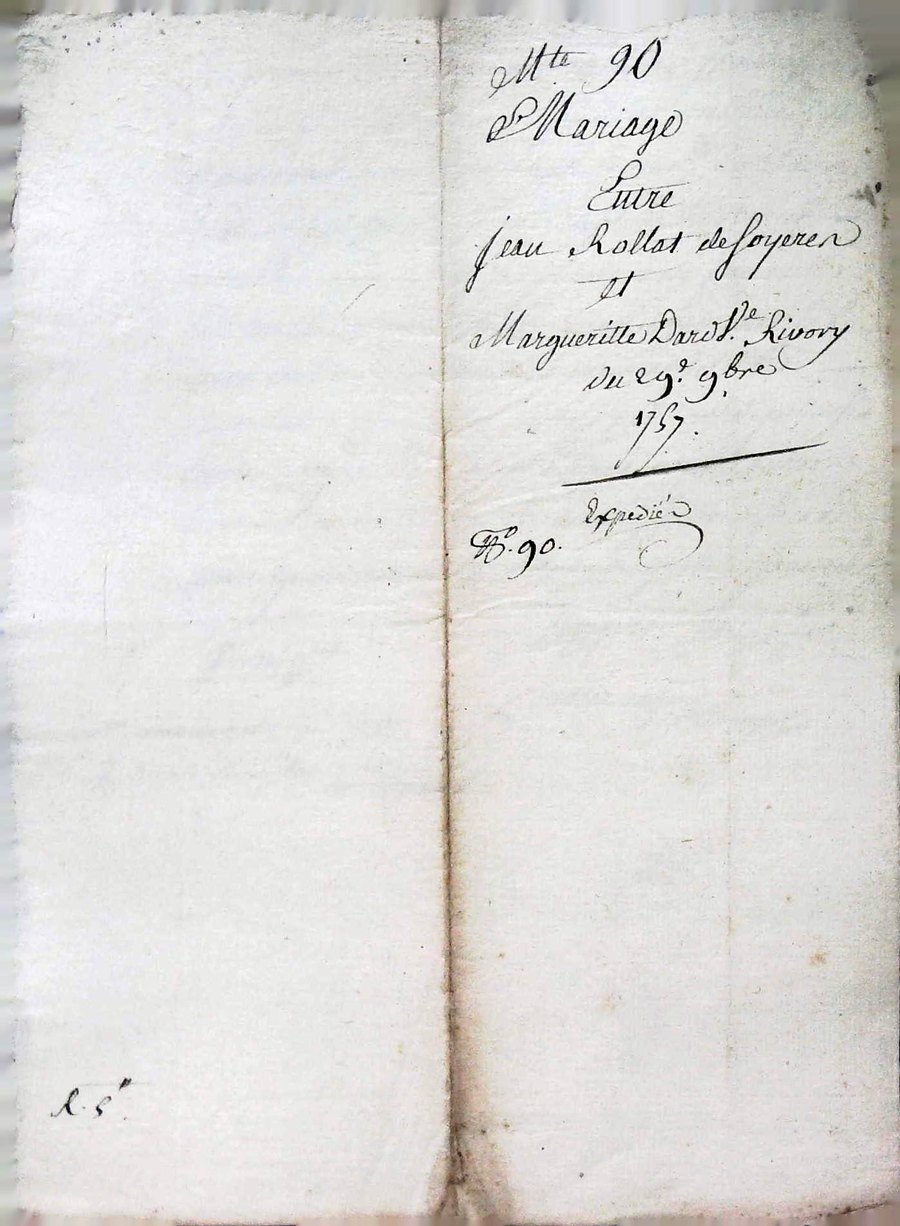 Mte 90
Mariage
Entre
Jean Rollat de Soyeren
et
Margueritte Dard Ve. Rivory
du 29e. 9bre
1757.
Expedié
No. 90.
R. 5